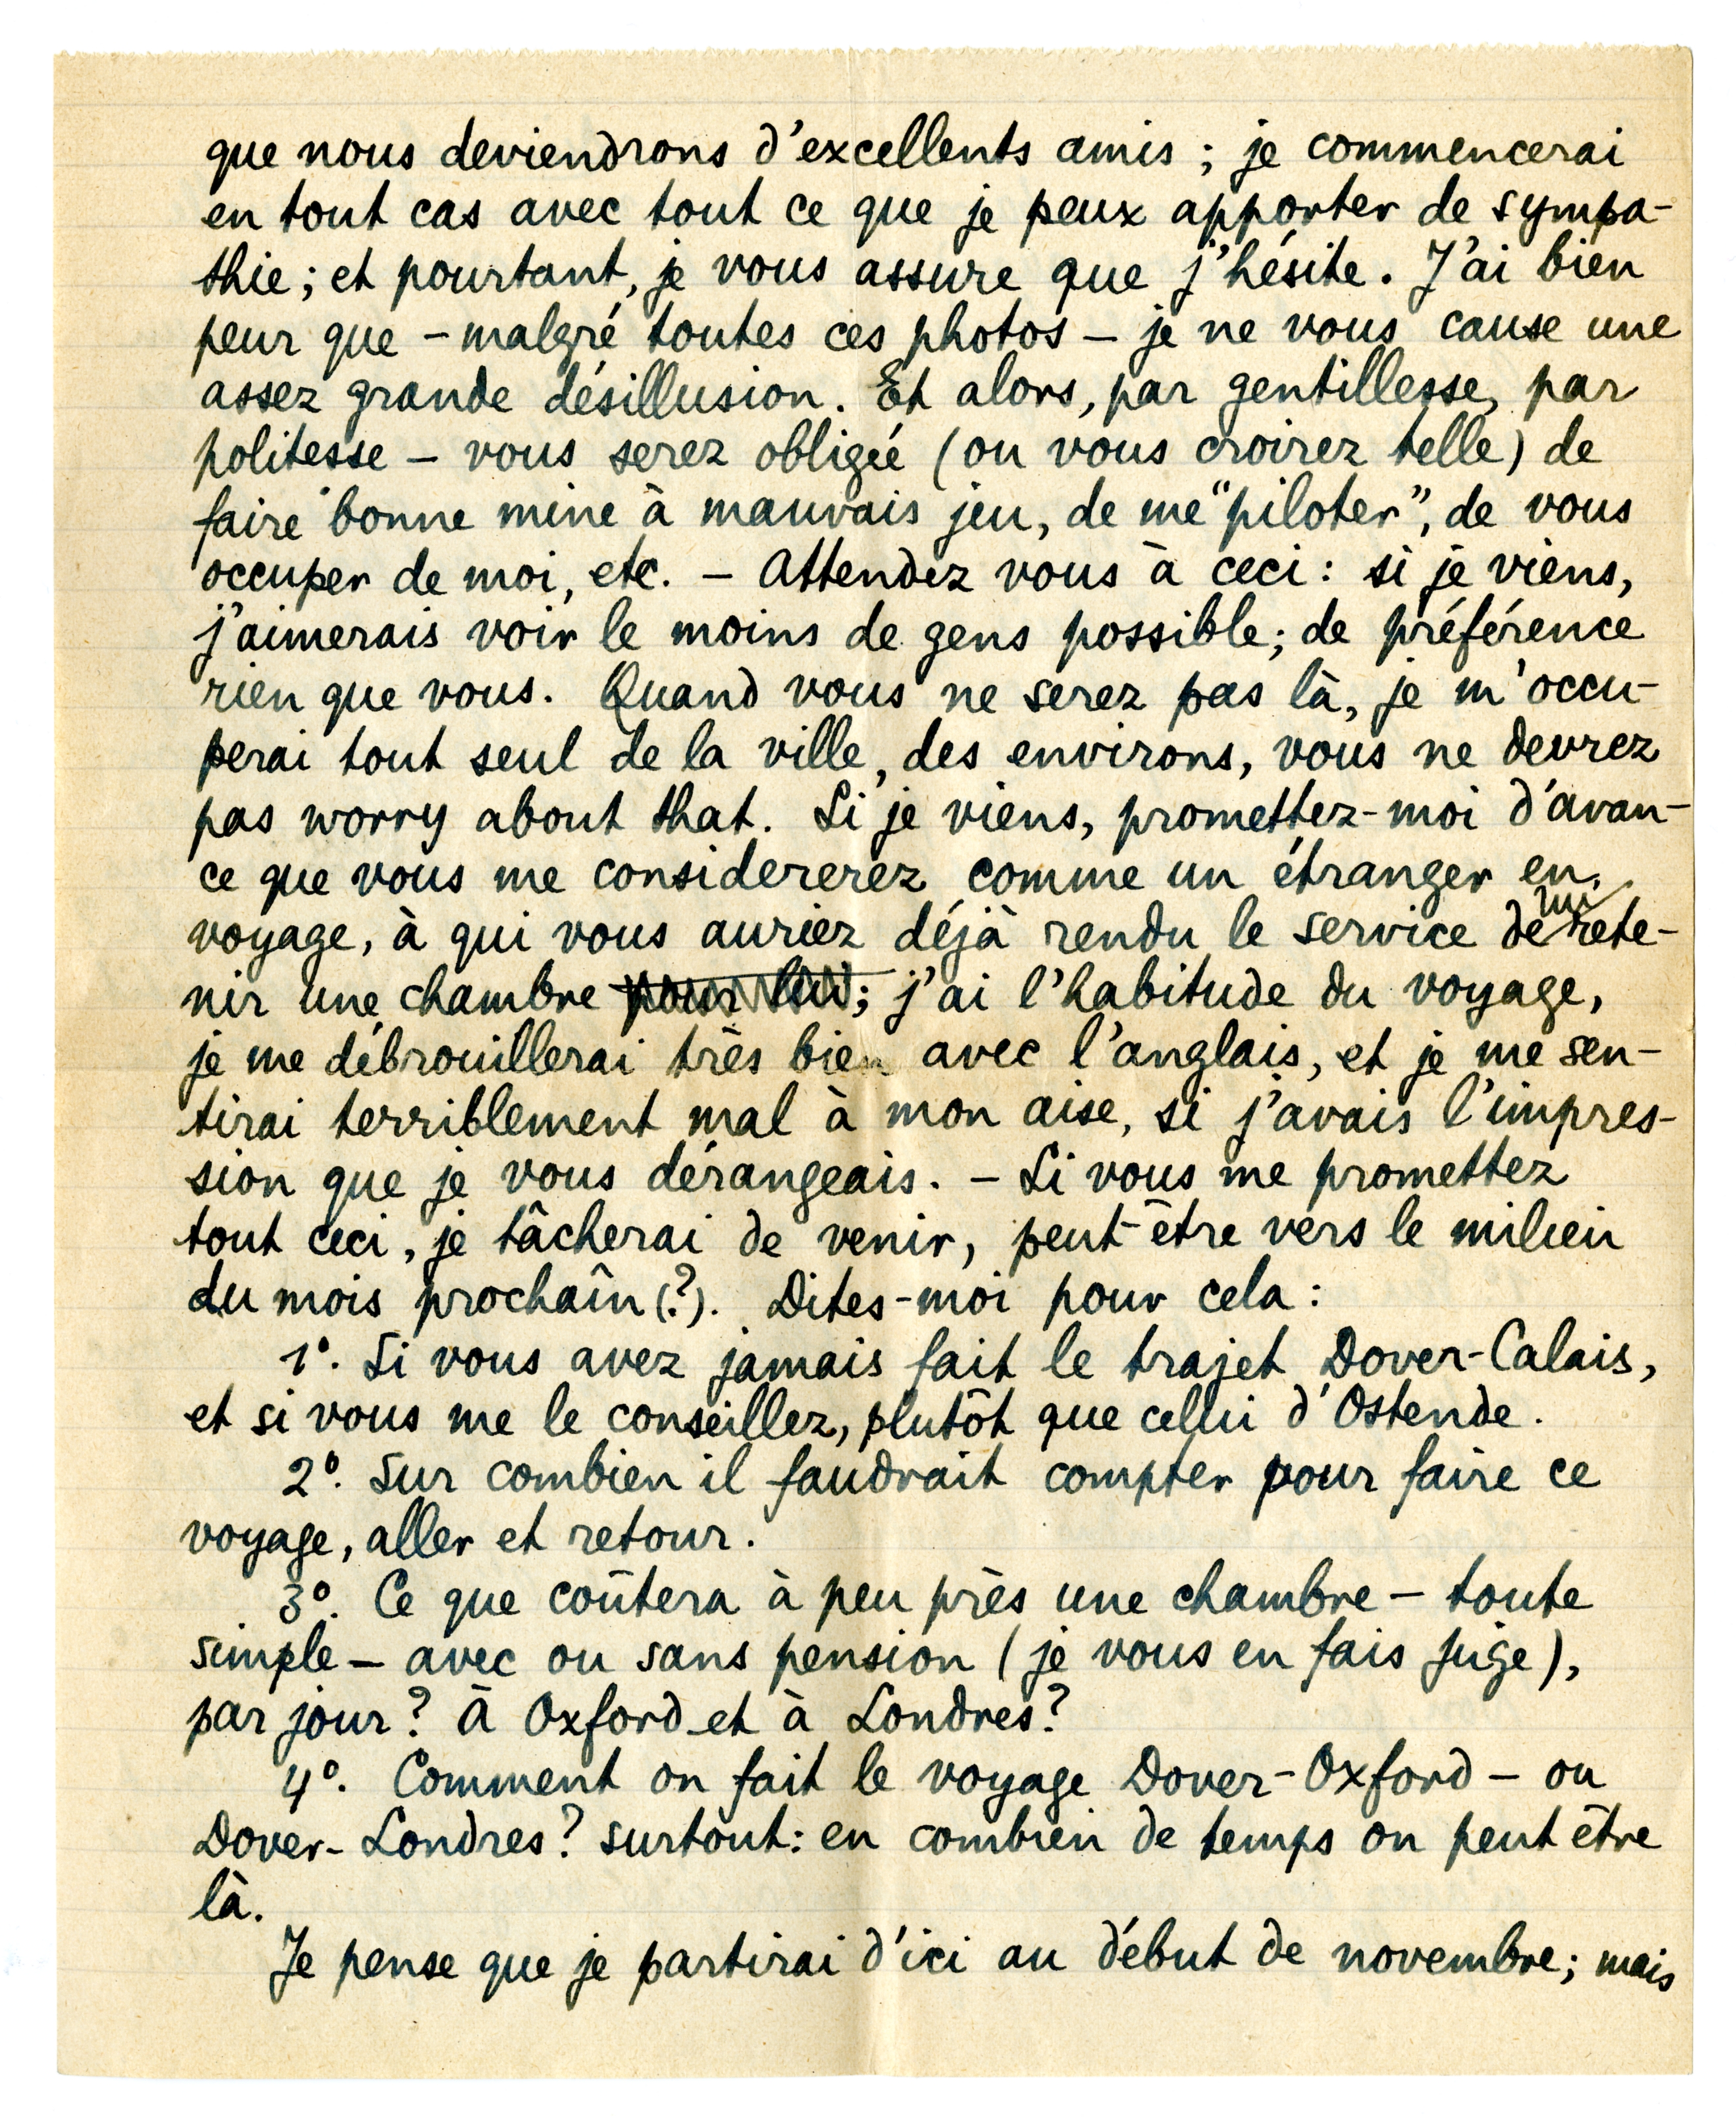 que nous deviendrons d'excellents amis ; je commencerai
en tout cas avec tout ce que je peux apporter de sympa-
thie ; et pourtant, je vous assure que j'hésite. J'ai bien
peur que – malgré toutes ces photos – je ne vous cause une
assez grande désillusion. Et alors, par gentillesse, par
politesse – vous serez obligée (ou vous croirez telle) de
faire bonne mine à mauvais jeu, de me "piloter", de vous
occuper de moi, etc. – Attendez vous à ceci : si je viens,
j'aimerais voir le moins de gens possible ; de préférence
rien que vous. Quand vous ne serez pas là, je m'occu-
perai tout seul de la ville, des environs, vous ne devrez
pas worry about that. Si je viens, promettez-moi d'avan-
ce que vous me considererez comme un étranger en
voyage, à qui vous auriez déjà rendu le service de lui rete-
nir une chambre pour lui; j'ai l'habitude du voyage,
je me débrouillerai très bien avec l'anglais, et je me sen-
tirai terriblement mal à mon aise, si j'avais l'impres-
sion que je vous dérangeais. – Si vous me promettez
tout ceci, je tâcherai de venir, peut-être vers le milieu
du mois prochaîn (?). Dites-moi pour cela :
1°. Si vous avez jamais fait le trajet Dover-Calais,
et si vous me le conseillez, plutôt que cellui d'Ostende.
2°. Sur combien il faudrait compter pour faire ce
voyage, aller et retour.
3°. Ce que coûtera à peu près une chambre – toute
simple – avec ou sans pension (je vous en fais juge),
par jour ? À Oxford et à Londres ?
4°. Comment on fait le voyage Dover-Oxford – ou
Dover-Londres ? surtout : en combien de temps on peut être
là.
Je pense que je partirai d'ici au début de novembre ; mais